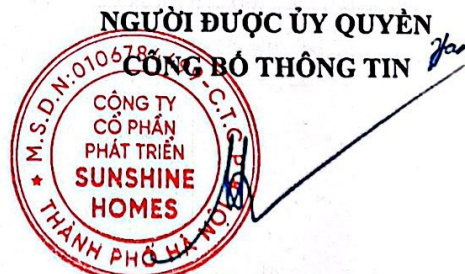 NGƯỜI ĐƯỢC ỦY QUYỀN
CÔNG BỐ THÔNG TIN
M.S.D.N:010678
C.T.C.P
CÔNG TY
CỔ PHẦN
PHÁT TRIỂN
SUNSHINE
HOMES
THÀNH PHỐ HÀ NỘI